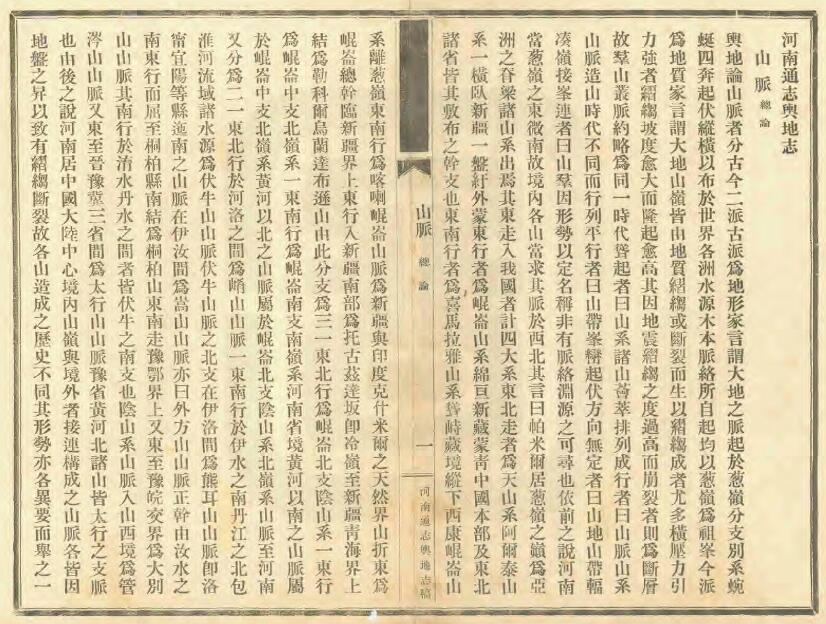 河南通志輿地志
山脈 總論
輿地論山脈者分古今二派古派爲地形家言謂大地之脈起於葱嶺分支別系蜿
蜒四奔起伏縱橫以布於世界各洲水源木本脈絡所自起均以葱嶺爲祖峯今派
爲地質家言謂大地山嶺皆由地質縐縐或斷裂而生以縐縐成者尤多橫壓力引
力強者縐縐坡度愈大而隆起愈高其因地震縐縐之度過高而崩裂者則爲斷層
故羣山叢脈約略爲同一時代聳起者曰山系諸山薈萃排列成行者曰山脈山系
山脈造山時代不同而行列平行者曰山帶峯巒起伏方向無定者曰山地山帶輻
湊嶺接峯連者曰山羣因形勢以定名稱非有脈絡淵源之可尋也依前之說河南
當葱嶺之東微南故境內各山當求其脈於西北其言曰帕米爾居葱嶺之巓爲亞
洲之脊梁諸山系出焉其東走入我國者計四大系東北走者爲天山系阿爾泰山
系一橫臥新疆一盤紆外蒙東行者爲崐崙山系綿亘新藏蒙靑中國本部及東北
諸省皆其敷布之幹支也東南行者爲喜馬拉雅山系聳峙藏境縱下西康崐崙山
山脈 總論
一
河南通志輿地志稿
系離葱嶺東南行爲喀喇崐崙山脈爲新疆與印度克什米爾之天然界山折東爲
崐崙總幹臨新疆界上東行入新疆南部爲托古茲達坂卽冷嶺至新疆靑海界上
結爲勒科爾烏蘭達布遜山由此分支爲三一東北行爲崐崙北支陰山系一東行
爲崐崙中支北嶺系一東南行爲崐崙南支南嶺系河南省境黃河以南之山脈屬
於崐崙中支北嶺系黃河以北之山脈屬於崐崙北支陰山系北嶺系山脈至河南
又分爲二一東北行於河洛之間爲崤山山脈一東南行於伊水之南丹江之北包
淮河流域諸水源爲伏牛山山脈伏牛山脈之北支在伊洛間爲熊耳山山脈卽洛
甯宜陽等縣迤南之山脈在伊汝間爲嵩山山脈亦曰外方山山脈正幹由汝水之
南東行而屈至桐柏縣南結爲桐柏山東南走豫鄂界上又東至豫皖交界爲大別
山山脈其南行於淯水丹水之間者皆伏牛之南支也陰山系山脈入山西境爲管
涔山山脈又東至晉豫冀三省間爲太行山山脈豫省黃河北諸山皆太行之支脈
也由後之說河南居中國大陸中心境內山嶺與境外者接連構成之山脈各皆因
地盤之昇以致有縐縐斷裂故各山造成之歷史不同其形勢亦各異要而舉之一